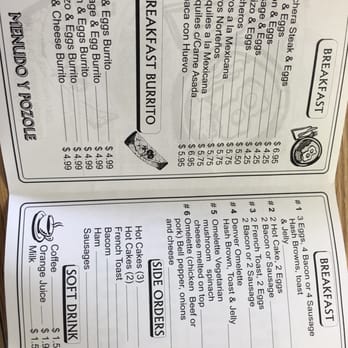 BREAKFAST
chera Steak & Eggs $ 6.95
& Eggs $ 4.25
& Eggs $ 4.25
sage & Eggs $ 4.25
izo & Eggs $ 4.25
cheros $ 5.50
ros a la Mexicana $ 5.75
ros Norteños $ 5.75
quiles a la Mexicana $ 5.75
quiles c/Carne Asada $ 6.75
aca con Huevo $ 5.95
BREAKFAST BURRITO
& Eggs Burrito $ 4.99
age & Egg Burrito $ 4.99
n & Eggs Burrito $ 4.99
zo & Eggs Burrito $ 4.99
& Cheese Burrito $ 4.99
MENUDO Y POZOLE
BREAKFAST
#1 3 Eggs, 4 Bacon or 4 Sausage
Hash Browns, toast
& Jelly
#2 2 Hot Cake, 2 Eggs
2 Bacon or Sausage
#3 2 French Toast, 2 Eggs
2 Bacon or 2 Sausage
#4 Denver Omelette
Hash Brown, Toast & Jelly
#5 Omelette Vegetarian
mushroom spinach
cheese melted on top
#6 Omelette (chicken Beef or
pork) Bell pepper, onions
and cheese
SIDE ORDERS
Hot Cakes (3)
Hot Cakes (2)
French Toast
Bacon
Ham
Sausages
SOFT DRINK
Coffee $ 1.5
Orange Juice $ 1.9
Milk $ 1.5